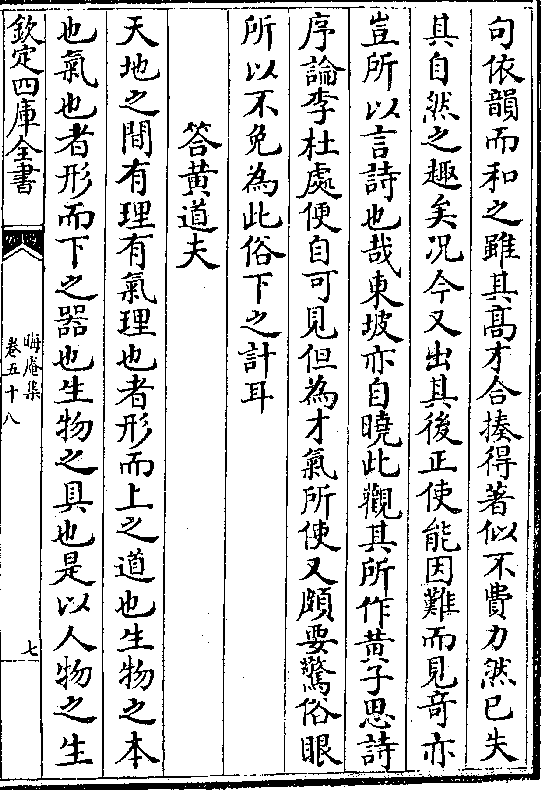 句依韻而和之雖其高才合揍得著似不費力然已失
其自然之趣矣况今又出其後正使能因難而見竒亦
豈所以言詩也哉東坡亦自曉此觀其所作黄子思詩
序論李杜處便自可見但為才氣所使又頗要驚俗眼
所以不免為此俗下之計耳
答黄道夫
天地之間有理有氣理也者形而上之道也生物之本
也氣也者形而下之器也生物之具也是以人物之生
欽定四庫全書
晦庵集
卷五十八
七